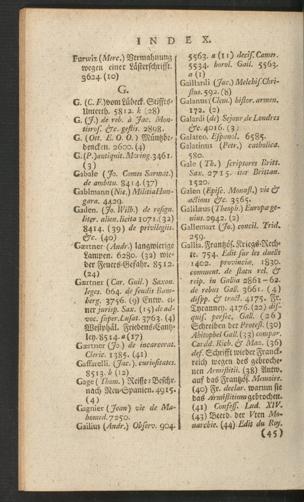 INDEX.
Furwitz (Merc.) Vermahnung
wegen einer Lästerschrifft.
3624. (10)
G.
G. (C. F.) vom Lübeck. Stiffts-
Unterth. 5812. k (28)
G. (J.) de reb. à Jac. Mon-
tisrof. &c. gestis. 2898.
G. (Ott. E. O. O.) Müntzbe-
dencken. 2600. (4)
G. (P.) antignit. Mæring. 3461.
(3)
Gabale (Jo. Comes Sarmat.)
de ambitu. 8414. (37)
Gablmann (Nic.) Militia Hun-
gara. 4429.
Gaden. (Jo. Wilh.) de resign.
liter. alien. licita 1071. (32)
8414. (39) de privilegiis
&c. (40)
Gærtner (Andr.) langwierige
Lampen. 6280. (32) wie-
der Feuers-Gefahr. 8512.
(24)
Gærtner (Car. Guil.) Saxon.
leges. 664. de feudis Bam-
berg. 3756. (9) Entw. ei-
ner jurisp. Sax. (15) de ad-
voc. super. Lusat. 3763. (4)
Westphäl. Friedens-Cantz-
ley. 8514. a (17)
Gærtner (Jo) de incarcerat.
Cleric. 1385. (41)
Gaffarelli. (Jac.) curiositates.
8513. h (12)
Gage (Thom.) Reisse-Beschr.
nach Neu-Spanien. 4915.
(4)
Gagnier (Jean) vie de Ma-
homed. 7250.
Gailius (Andr.) Observ. 904.
5563. a (11) decis. Camer.
5534. horol. Gail. 5563.
a (1)
Gaillardi (Jac.) Melchis. Chri-
stus. 592. (8)
Galanus (Clem.) histor. armen.
172. (2)
Galardi (de) Sejour de Londres
&c. 4016. (3)
Galateo. Espanol. 6585.
Galatinus (Petr.) catholica.
580.
Gale (Th.) scriptores Britt.
Sax. 2715. iter Britan.
1520.
Galen (Episc. Monast.) vie &
actions &c. 3565.
Galilanus (Theoph.) Europa ge-
nius. 2942. (2)
Gallemart (Jo.) concil. Trid.
259.
Gallia. Frantzös. Kriegs-Rech-
te. 754. Edit sur les duelts
1402. provinciæ, 1830.
comment. de statu rel. &
reip. in Gallia 2861-62.
de rebus Gall. 3661. (4)
disp. & tract. 4175. Fr.
Tyranney. 4176. (22) dis-
quis. persic. Gall. (26)
Schreiben der Protest. (30)
Ahitophel Gall. (33) compar.
Card. Rich. & Maz. (36)
def. Schrifft wieder Franck-
reich wegen des gebroche-
nen Armistitii. (38) Antw.
auf das Frantzös. Memoire.
(40) Fr. declar. warum sie
das Armistitium gebrochen.
(41) Confess. Lud. XIV.
(43) Beerd. der V. ten Mo-
narchie. (44) Edit du Roy.
(45)